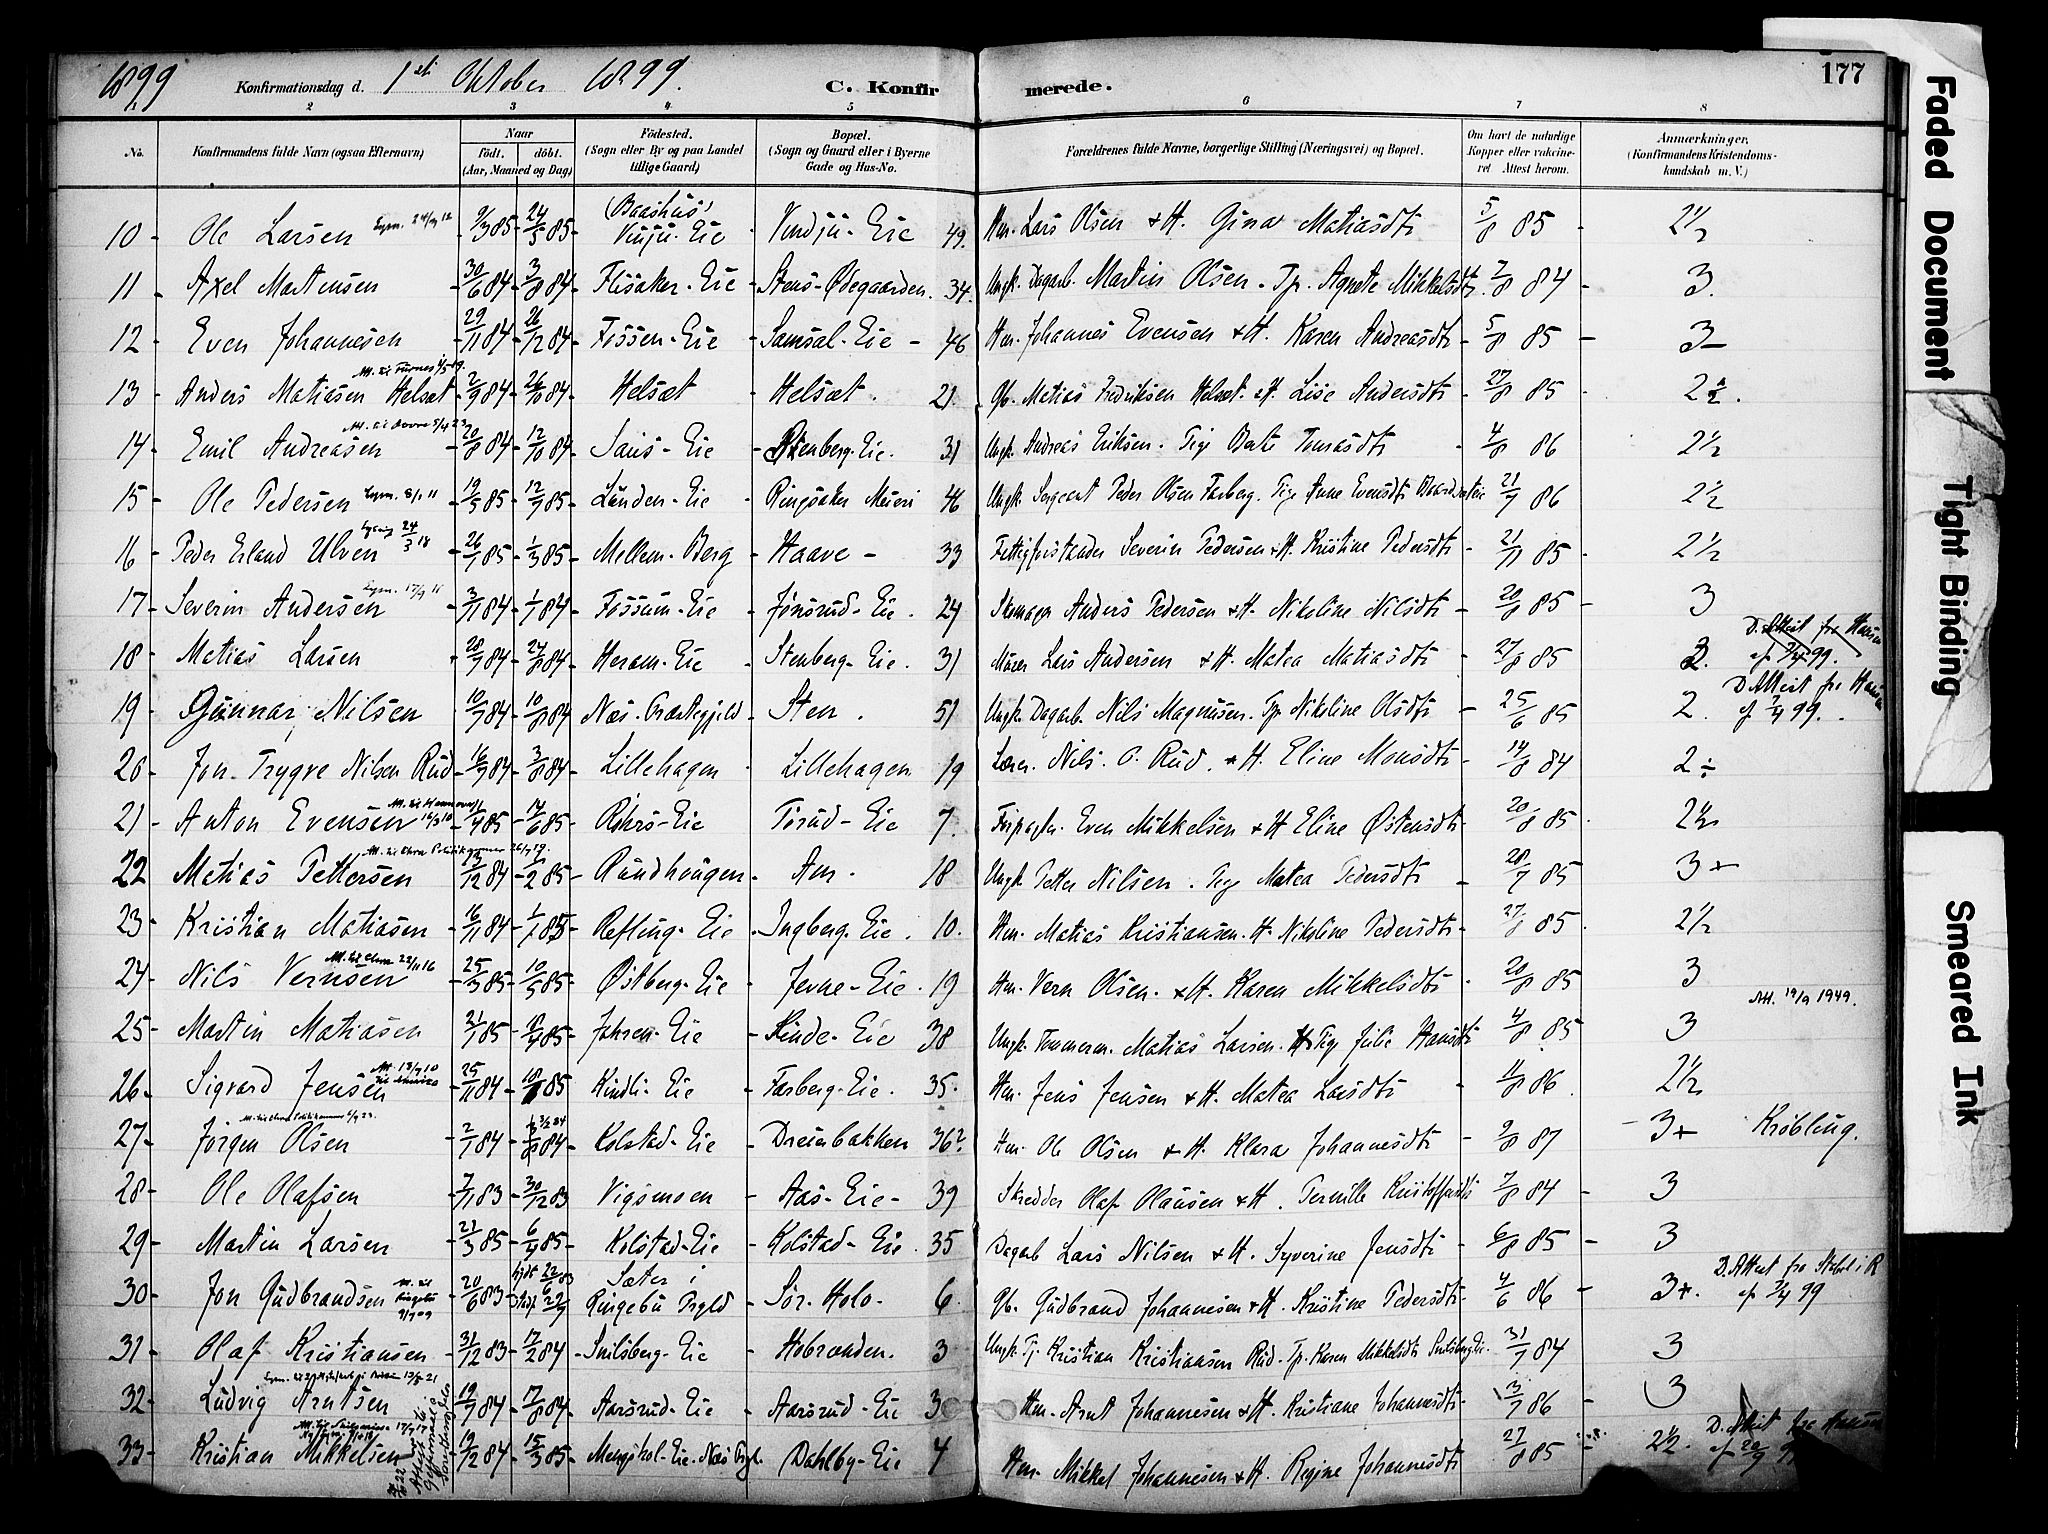 1899 Konfirmationsdag d. 1ste Oktober 1899. C. Konfirmerede. 177
2 3 4 5 6 7 8
No. Konfirmandens fulde Navn (ogsaa Efternavn) Naar født. døbt. (Aar, Maaned og Dag) Fødested. (Sogn eller By og paa Landet tillige Gaard) Bopæl. (Sogn og Gaard eller i Byerne Gade og Hus-No. Forældrenes fulde Navne, borgerlige Stilling (Næringsvei) og Bopæl. Om havt de naturlige Kopper eller vakcineret Attest herom. Anmærkninger, (Konfirmandens Kristendomskundskab m. V.)
10 - Ole Larsen 9/3 85 24/5 85 (Baashus) Vinju-Eie Vindju-Eie 49. Hm. Lars Olsen & H. Gina Matiasdtr 5/8 85 - 2 1/2
11 - Axel Martinsen 30/6 84 3/8 84 Flisaker-Eie Stens-Ødegaarden 34. Ungk. Dagarb. Martin Olsen - Tp. Agnete Mikkelsdtr 7/8 84 - 3.
12 - Even Johannesen 29/11 84 26/12 84 Fossen-Eie Samsal-Eie - 46 Hm. Johannes Evensen & H. Karen Andreasdtr 5/8 85 - 3-
13 - Anders Matiasen Helsæt 2/9 84 26/10 84 Helsæt Helsæt. 21. Gb. Matias Fredriksen Helsæt & H. Lise Andersdtr 27/8 85
14 - Emil Andreasen 20/8 84 12/10 84 Sans-Eie Stenberg-Eie. 31 Ungk. Andreas Eriksen. Pige Berte Tomasdtr 4/8 86 2 1/2
15 - Ole Pedersen 19/5 85 12/7 85 Lunden-Eie Ringsaker Meieri 46 Ungk. Sergeant Peder Olsen Farberg. Pige Anne Evensdtr 21/7 86 2 1/2
16 - Peder Erland Ulven 26/1 85 1/3 85 Mellem-Berg Haave - 33 Fattigforstander Severin Pedersen & H. Kristine Pedersdtr 21/11 85 - 2 1/2
17 - Severin Andersen 3/11 84 1/1 84 Fossum-Eie Jønsrud-Eie. 24 Skomager Anders Pedersen & H. Nikoline Nilsdtr 20/8 85 - 3
18 - Matias Larsen 28/7 84 24/8 84 Heram-Eie Stenberg-Eie. 31 Murer Lars Andersen & H. Matea Matiasdtr 27/8 85 D. Attest fra
19 - Gunnar Nilsen 10/7 84 10/8 84 Næs Præstegjeld Sten. 51 Ungk. Dagarb. Nils Magnusen. Tp. Nikoline Olsdtr - 25/6 85 2. D. Attest fra af 7/4 99.
20 - Jon Trygve Nilsen Rud 16/7 84 3/8 84 Lillehagen Lillehagen 19 Lærer. Nils O. Rud & H. Eline Monsdtr 14/8 84 2 ÷
21 - Anton Evensen 85 14/6 85 Røhrs-Eie Tørud-Eie 7. Even Mikkelsen & H Eline Østensdtr 20/8 85. 2 1/2
22 Matias Pettersen 13/12 84 1/2 85 Rundhaugen. Am. 18 Ungk. Petter Nilsen. Pige Matea Pedersdtr - 28/7 85 3 +
23 - Kristian Matiasen 16/11 84 1/1 85 Refling-Eie Ingberg-Eie. 10. Hm. Matias Kristiansen. H. Nikoline Pedersdtr 27/8 85. 2 1/2
24 - Nils Vernsen 25/3 85 10/5 85 Østberg-Eie Jevne-Eie. 19 Hm. Vern Olsen. & H. Karen Mikkelsdtr 20/8 85 3
25 - Martin Matiasen 21/1 85 85 Jahren-Eie Linde-Eie 38 Ungk. Tømmerm. Matias Larsen. Pige Julie Hansdtr 4/8 85 3 Att. 19/9 1949.
26 - Sigvard Jensen 25/11 84 18/1 85 Kindli-Eie Farberg-Eie. 35. Hm. Jens Jensen & H. Matea Larsdtr 11/8 86. 2 1/2
27 - Jørgen Olsen 2/1 84 84 Kolstad-Eie Dreinbakken 36? Hm. Ole Olsen & H. Klara Johannesdtr - 9/8 87 3+ Krøbling.
28 - Ole Olafsen 7/11 83 30/12 83 Vigsmoen - Aas-Eie - 39 Skredder Olaf Olausen & H. Pernille Kristoffersdtr 7/8 84 - 3
29 - Martin Larsen 21/3 85 6/4 85 Kolstad-Eie Kolstad-Eie. 35 Dagarb Lars Nilsen & H. Syverine Jensdtr - 6/8 85 - 3
30 - Jon Gudbrandsen 20/6 83 Sæter i Ringebu Prgld Sør-Holo. 6. Gb. Gudbrand Johannesen & H. Kristine Pedersdtr 4/6 86 - 3+. D. Attest fra af 3/4 99
31 - Olaf Kristiansen 31/12 83 17/2 84 Snilsberg-Eie Hobranden. 3 Ungk. Tj. Kristian Kristiansen Rud. Tp. Karen Mikkelsdtr 31/7 84 3
32 - Ludvig Arntsen 19/7 84 17/8 84 Aarsrud-Eie Aarsrud-Eie 3 Hm. Arnt Johannesen & H. Kristiane Johannesdtr 3/7 86 - 3
33 - Kristian Mikkelsen 19/12 84 15/3 85 Mengshol-Eie. Næs Prgl. Dahlby-Eie 4 Hm. Mikkel Johannesen & H. Regine Johannesdtr 27/8 85 2 1/2. D. Attest fra
Faded Document
Tight Binding
Smeared Ink